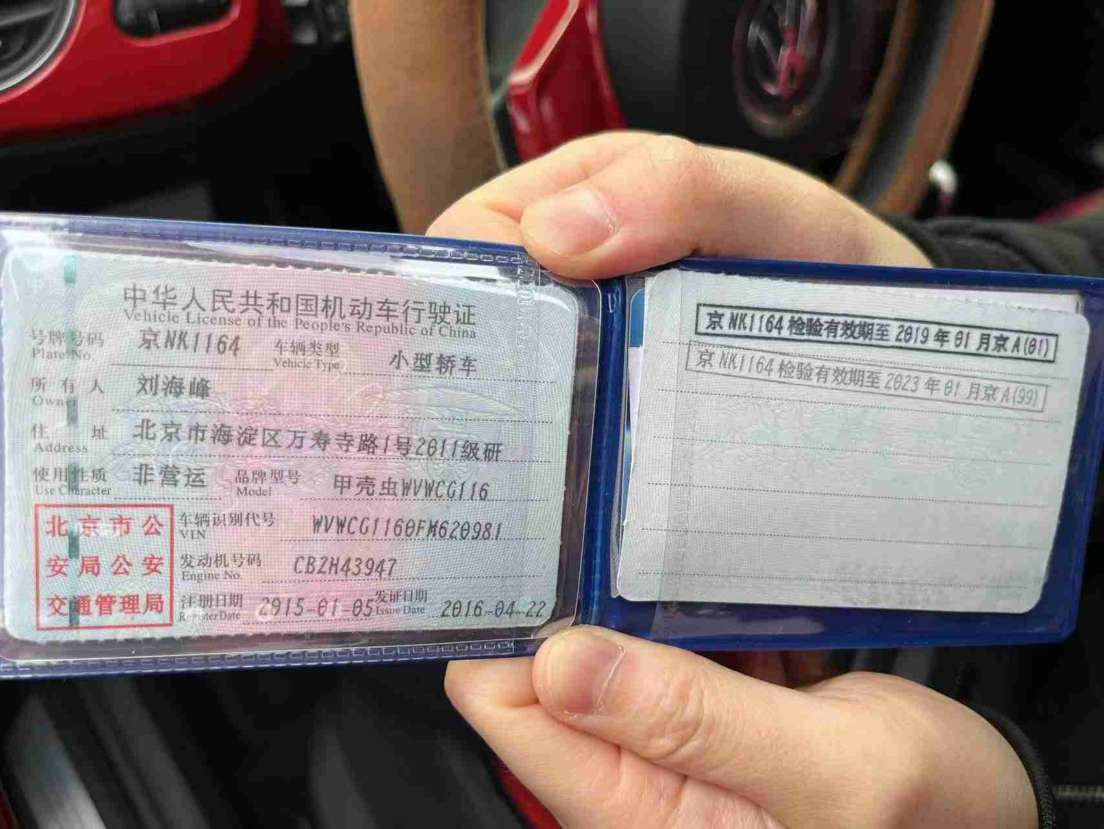 中华人民共和国机动车行驶证
Vehicle License of the People's Republic of China
号牌号码 Plate No. 京NK1164 车辆类型 Vehicle Type 小型轿车
所有人 Owner 刘海峰
住址 Address 北京市海淀区万寿寺路1号2011级研
使用性质 Use Character 非营运 品牌型号 Model 甲壳虫WVWCG116
北京市公安局公安交通管理局
车辆识别代号 VIN WVWCG1160FM620981
发动机号码 Engine No. CBZH43947
注册日期 Register Date 2015-01-05 发证日期 Issue Date 2016-04-22
京NK1164检验有效期至2019年01月京A(01)
京NK1164检验有效期至2023年01月京A(99)